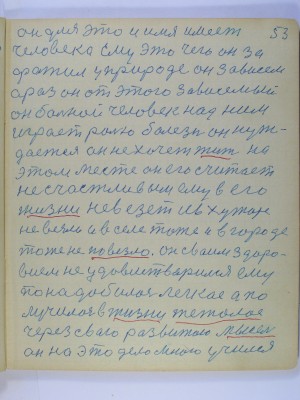 53
он для это и имя имеет
человека ему это чего он за
фатил у природе он зависем
а раз он от этого зависемый
он болной человек над ним
играет ролю болезн он нуж-
дается он не хочет жит на
этом месте он его считает
несчастливым ему в его
жизни не везет и в хутор
не везли и в селе тоже и в городе
тоже не повезло. он своим здоро-
вием не удовлитварился ему
понадобилос легкое а по
лучилос в жизни тежолое
через сваго развитою мысел
он на это дело много учился